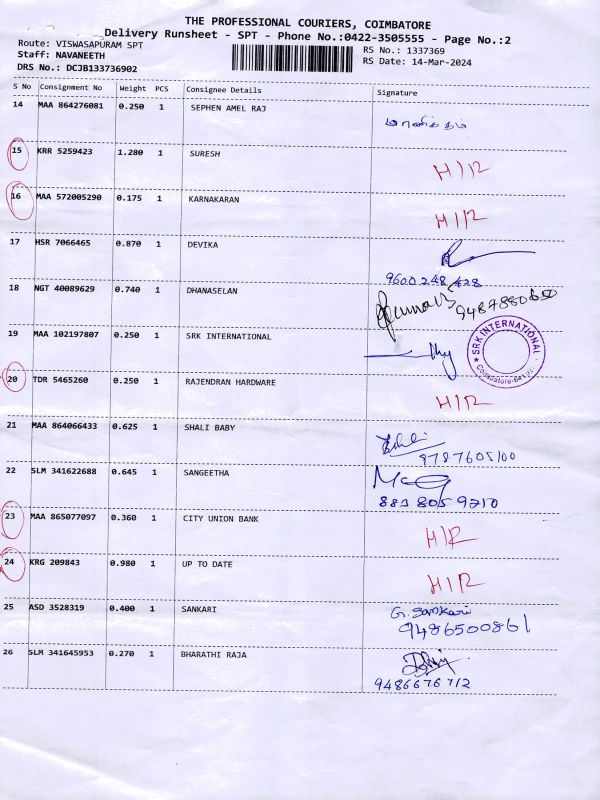 THE PROFESSIONAL COURIERS, COIMBATORE
Delivery Runsheet - SPT - Phone No.:0422-3505555 - Page No.:2
Route: VISWASAPURAM SPT
RS No.: 1337369
Staff: NAVANEETH
RS Date: 14-Mar-2024
DRS No.: DCJB133736902
S No Consignment No Weight PCS Consignee Details Signature
14 MAA 864276081 0.250 1 SEPHEN AMEL RAJ
15 KRR 5259423 1.280 1 SURESH H/R
16 MAA 572005290 0.175 1 KARNAKARAN H/R
17 HSR 7066465 0.870 1 DEVIKA
9600248428
18 NGT 40089629 0.740 1 DHANASELAN
19 MAA 102197807 0.250 1 SRK INTERNATIONAL
SRK INTERNATIONAL
20 TDR 5465260 0.250 1 RAJENDRAN HARDWARE H/R
21 MAA 864066433 0.625 1 SHALI BABY
8787605100
22 SLM 341622688 0.645 1 SANGEETHA
23 MAA 865077097 0.360 1 CITY UNION BANK H/R
24 KRG 209843 0.980 1 UP TO DATE H/R
25 ASD 3528319 0.400 1 SANKARI G. Sankari
9486500861
26 SLM 341645953 0.270 1 BHARATHI RAJA
9486676712